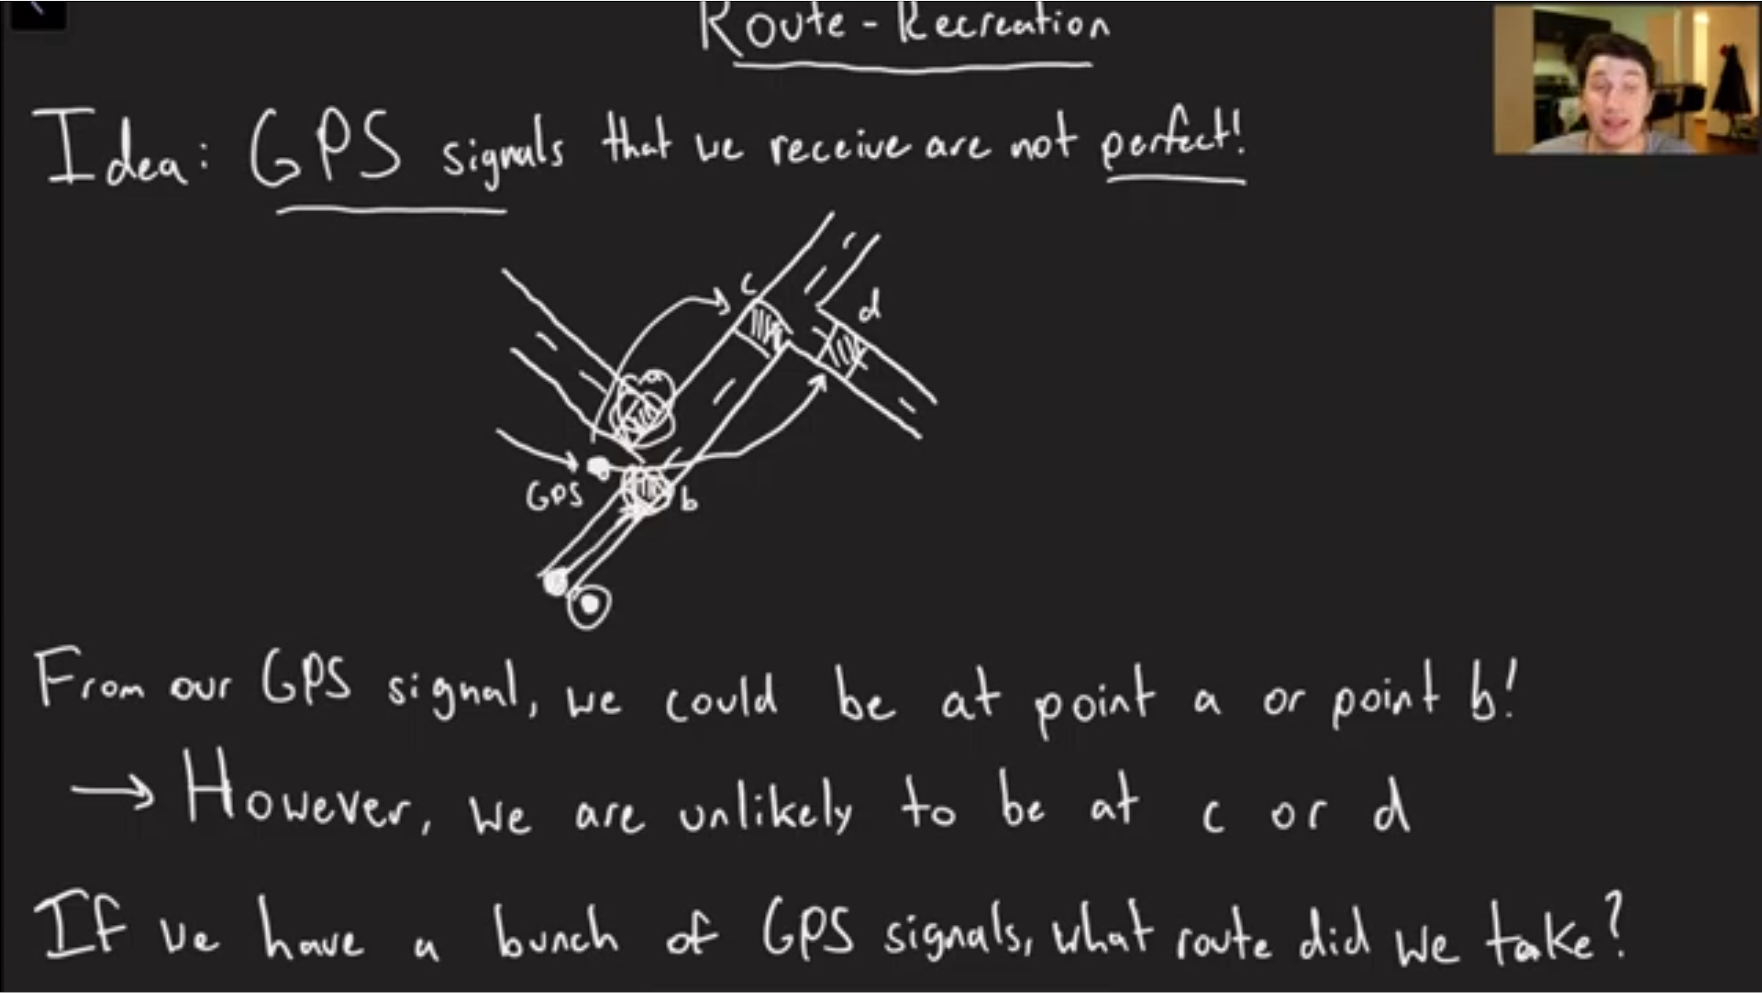 Route-Recreation
Idea: GPS signals that we receive are not perfect!
c
d
a
GPS
b
From our GPS signal, we could be at point a or point b!
→ However, we are unlikely to be at c or d
If we have a bunch of GPS signals, what route did we take?